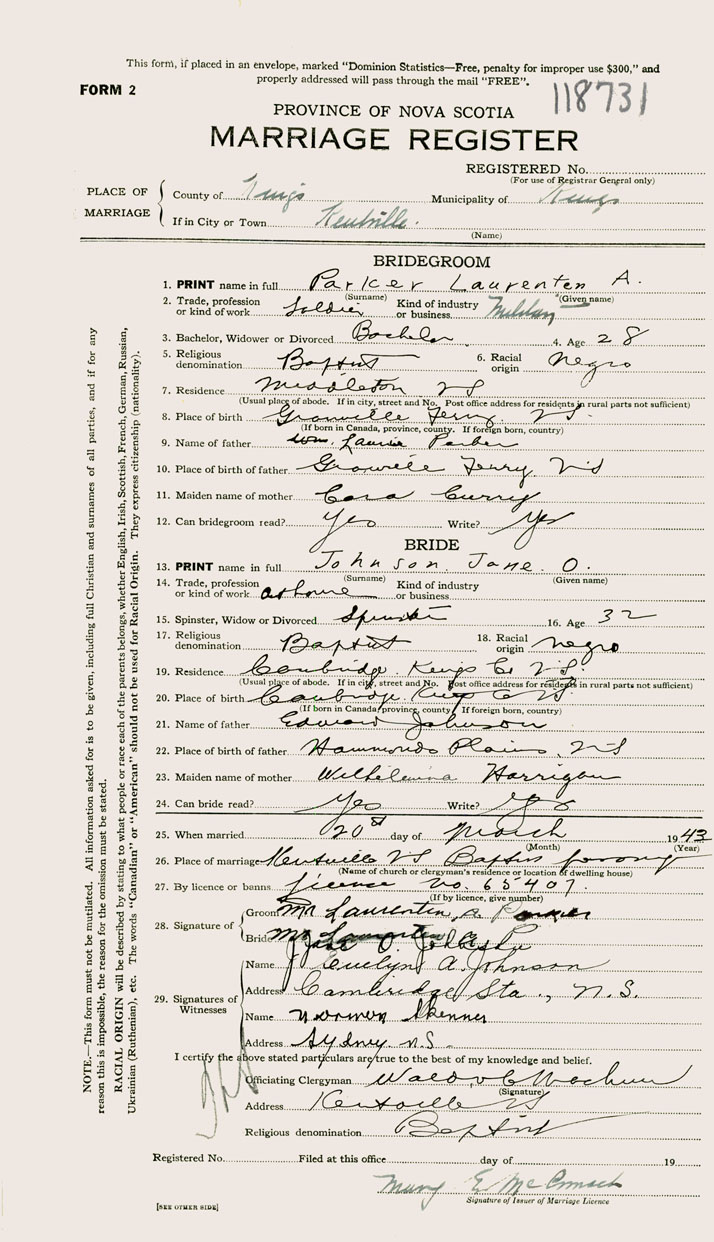 This form, if placed in an envelope, marked "Dominion Statistics—Free, penalty for improper use $300," and
properly addressed will pass through the mail "FREE".
FORM 2
118731
PROVINCE OF NOVA SCOTIA
MARRIAGE REGISTER
REGISTERED No.
(For use of Registrar General only)
PLACE OF MARRIAGE
County of Kings Municipality of Kings
If in City or Town Kentville.
(Name)
BRIDEGROOM
1. PRINT name in full Parker Laurenten A.
(Surname) (Given name)
2. Trade, profession or kind of work Soldier Kind of industry or business Military
3. Bachelor, Widower or Divorced Bachelor 4. Age 28
5. Religious denomination Baptist 6. Racial origin Negro
7. Residence Middleton NS
(Usual place of abode. If in city, street and No. Post office address for residents in rural parts not sufficient)
8. Place of birth Granville Ferry. NS.
(If born in Canada, province, county. If foreign born, country)
9. Name of father Wm. Laurie Parker
10. Place of birth of father Granville Ferry NS
11. Maiden name of mother Cora Curry
12. Can bridegroom read? Yes Write? Yes
BRIDE
13. PRINT name in full Johnson Jane O.
(Surname) (Given name)
14. Trade, profession or kind of work at home Kind of industry or business
15. Spinster, Widow or Divorced Spinster 16. Age 32
17. Religious denomination Baptist 18. Racial origin Negro
19. Residence Cambridge. Kings Co NS.
(Usual place of abode. If in city, street and No. Post office address for residents in rural parts not sufficient)
20. Place of birth Cambridge. Kings Co NS.
(If born in Canada, province, county If foreign born, country)
21. Name of father Edward Johnson
22. Place of birth of father Hammonds Plains NS
23. Maiden name of mother Wilhelmina Harrigan
24. Can bride read? Yes Write? Yes
25. When married 20th day of March 1943
(Month) (Year)
26. Place of marriage Kentville NS Baptist parsonage
(Name of church or clergyman's residence or location of dwelling house)
27. By licence or banns license no. 65407.
(If by licence, give number)
28. Signature of
Groom Mr Laurenten A Parker
Bride Jane O. Johnson
29. Signatures of Witnesses
Name Evelyn A. Johnson
Address Cambridge Sta., N.S.
Name Norman Skinner
Address Sydney N.S.
I certify the above stated particulars are true to the best of my knowledge and belief.
Officiating Clergyman Waldo C
(Signature)
Address Kentville NS
Religious denomination Baptist
Registered No. Filed at this office day of 19
Mary E. McCormack
Signature of Issuer of Marriage Licence
[SEE OTHER SIDE]
NOTE.—This form must not be mutilated. All information asked for is to be given, including full Christian and surnames of all parties, and if for any
reason this is impossible, the reason for the omission must be stated.
RACIAL ORIGIN will be described by stating to what people or race each of the parents belongs, whether English, Irish, Scottish, French, German, Russian,
Ukrainian (Ruthenian), etc. The words "Canadian" or "American" should not be used for Racial Origin. They express citizenship (nationality).